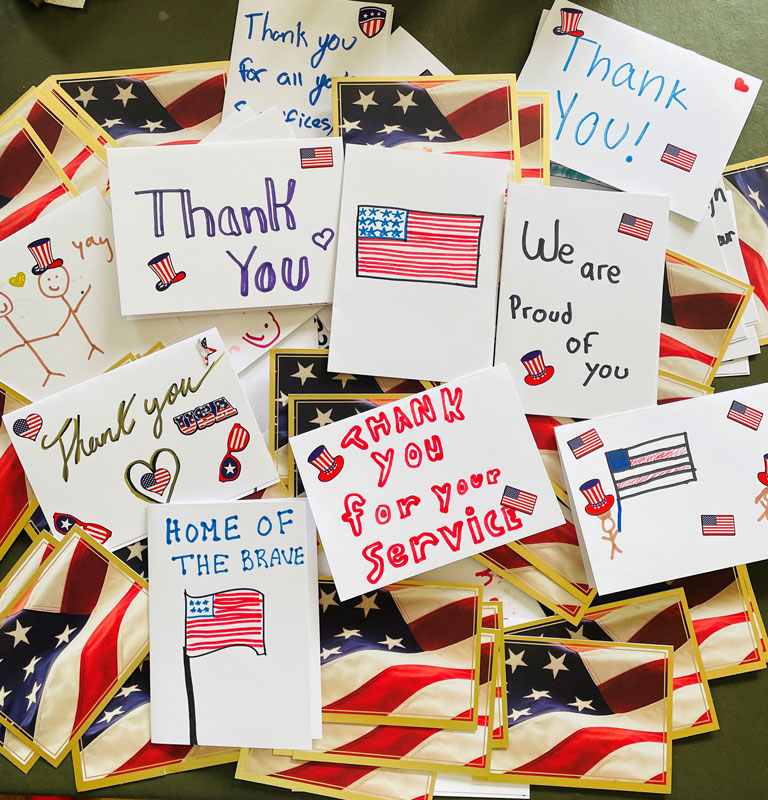 Thank you
for all
Sacrifices,
Thank
You!
Thank
You
We
are
Proud
of
you
yay
Thank you
USA
THANK
YOU
for your
Service
HOME OF
THE BRAVE